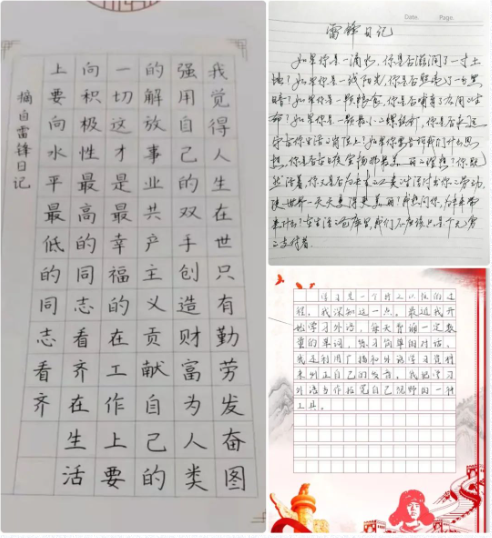 我觉得人生在世只有勤劳发奋图
强用自己的双手创造财富为人类
的解放事业共产主义贡献自己的
一切这才是最幸福的在工作上要
向积极性最高的同志看齐在生活
上要向水平最低的同志看齐
摘自雷锋日记
Date Page
雷锋日记
如果你是一滴水,你是否滋润了一寸土
地?如果你是一线阳光,你是否照亮了一分黑
暗?如果你是一颗粮食,你是否哺育了有用的生
命?如果你是一颗最小的螺丝钉,你是否永远坚
守在你生活的岗位上?如果你要告诉我们什么思
想,你是否在日夜宣扬那最美丽的理想?你既
然活着,你又是否为未来的人类生活付出你的劳动,
使世界一天天变得更美丽?我想问你,为未来带
来什么?在生活的仓库里,我们不应该只是个无穷尽
的支付者。
学习是一个持之以恒的过
程,我深知这一点。最近我开
始学习外语,每天背诵一定数
量的单词,练习简单的对话。
我还利用广播和外语学习资料
来纠正自己的发音。我把学习
外语当作拓宽自己视野的一种
工具。